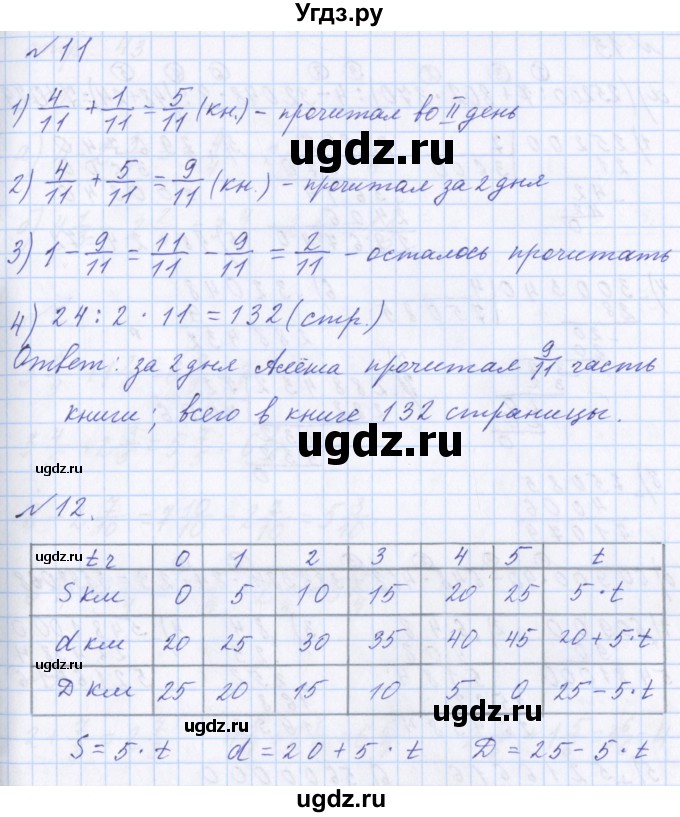 Угдз.ру
№11
1) 4/11 + 1/11 = 5/11 (кн.) - прочитал во II день
ugdz.ru
2) 4/11 + 5/11 = 9/11 (кн.) - прочитал за 2 дня
3) 1 - 9/11 = 11/11 - 9/11 = 2/11 - осталось прочитать
4) 24 : 2 · 11 = 132 (стр.)
Ответ: за 2 дня Алёша прочитал 9/11 часть
книги; всего в книге 132 страницы.
ugdz.ru
ugdz.ru
№12.
ugdz.ru
t ч 0 1 2 3 4 5 t
S км 0 5 10 15 20 25 5·t
d км 20 25 30 35 40 45 20+5·t
ugdz.ru
D км 25 20 15 10 5 0 25-5·t
ugdz.ru
ugdz.ru
S = 5·t d = 20+5·t D = 25-5·t
ugdz.ru